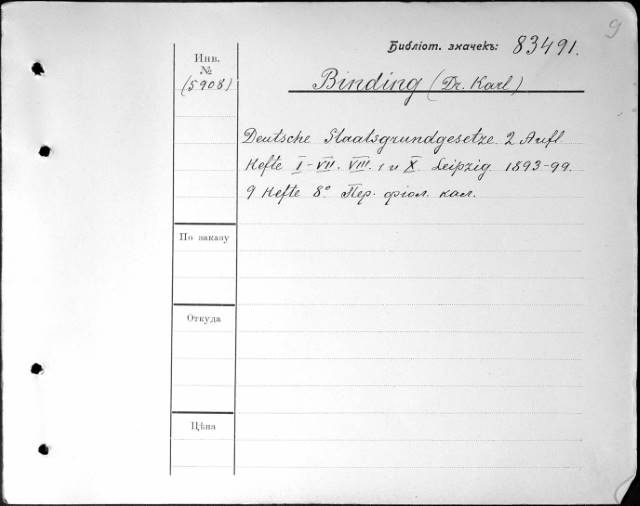 9
Библіот. значекъ: 83491.
Инв.
№
(5908)
Binding (Dr. Karl)
Deutsche Staatsgrundgesetze. 2 Aufl.
Hefte I-VII. VIII. 1 u X. Leipzig 1893-99.
9 Hefte 8° Пер. фіол. кал.
По заказу
Откуда
Цѣна